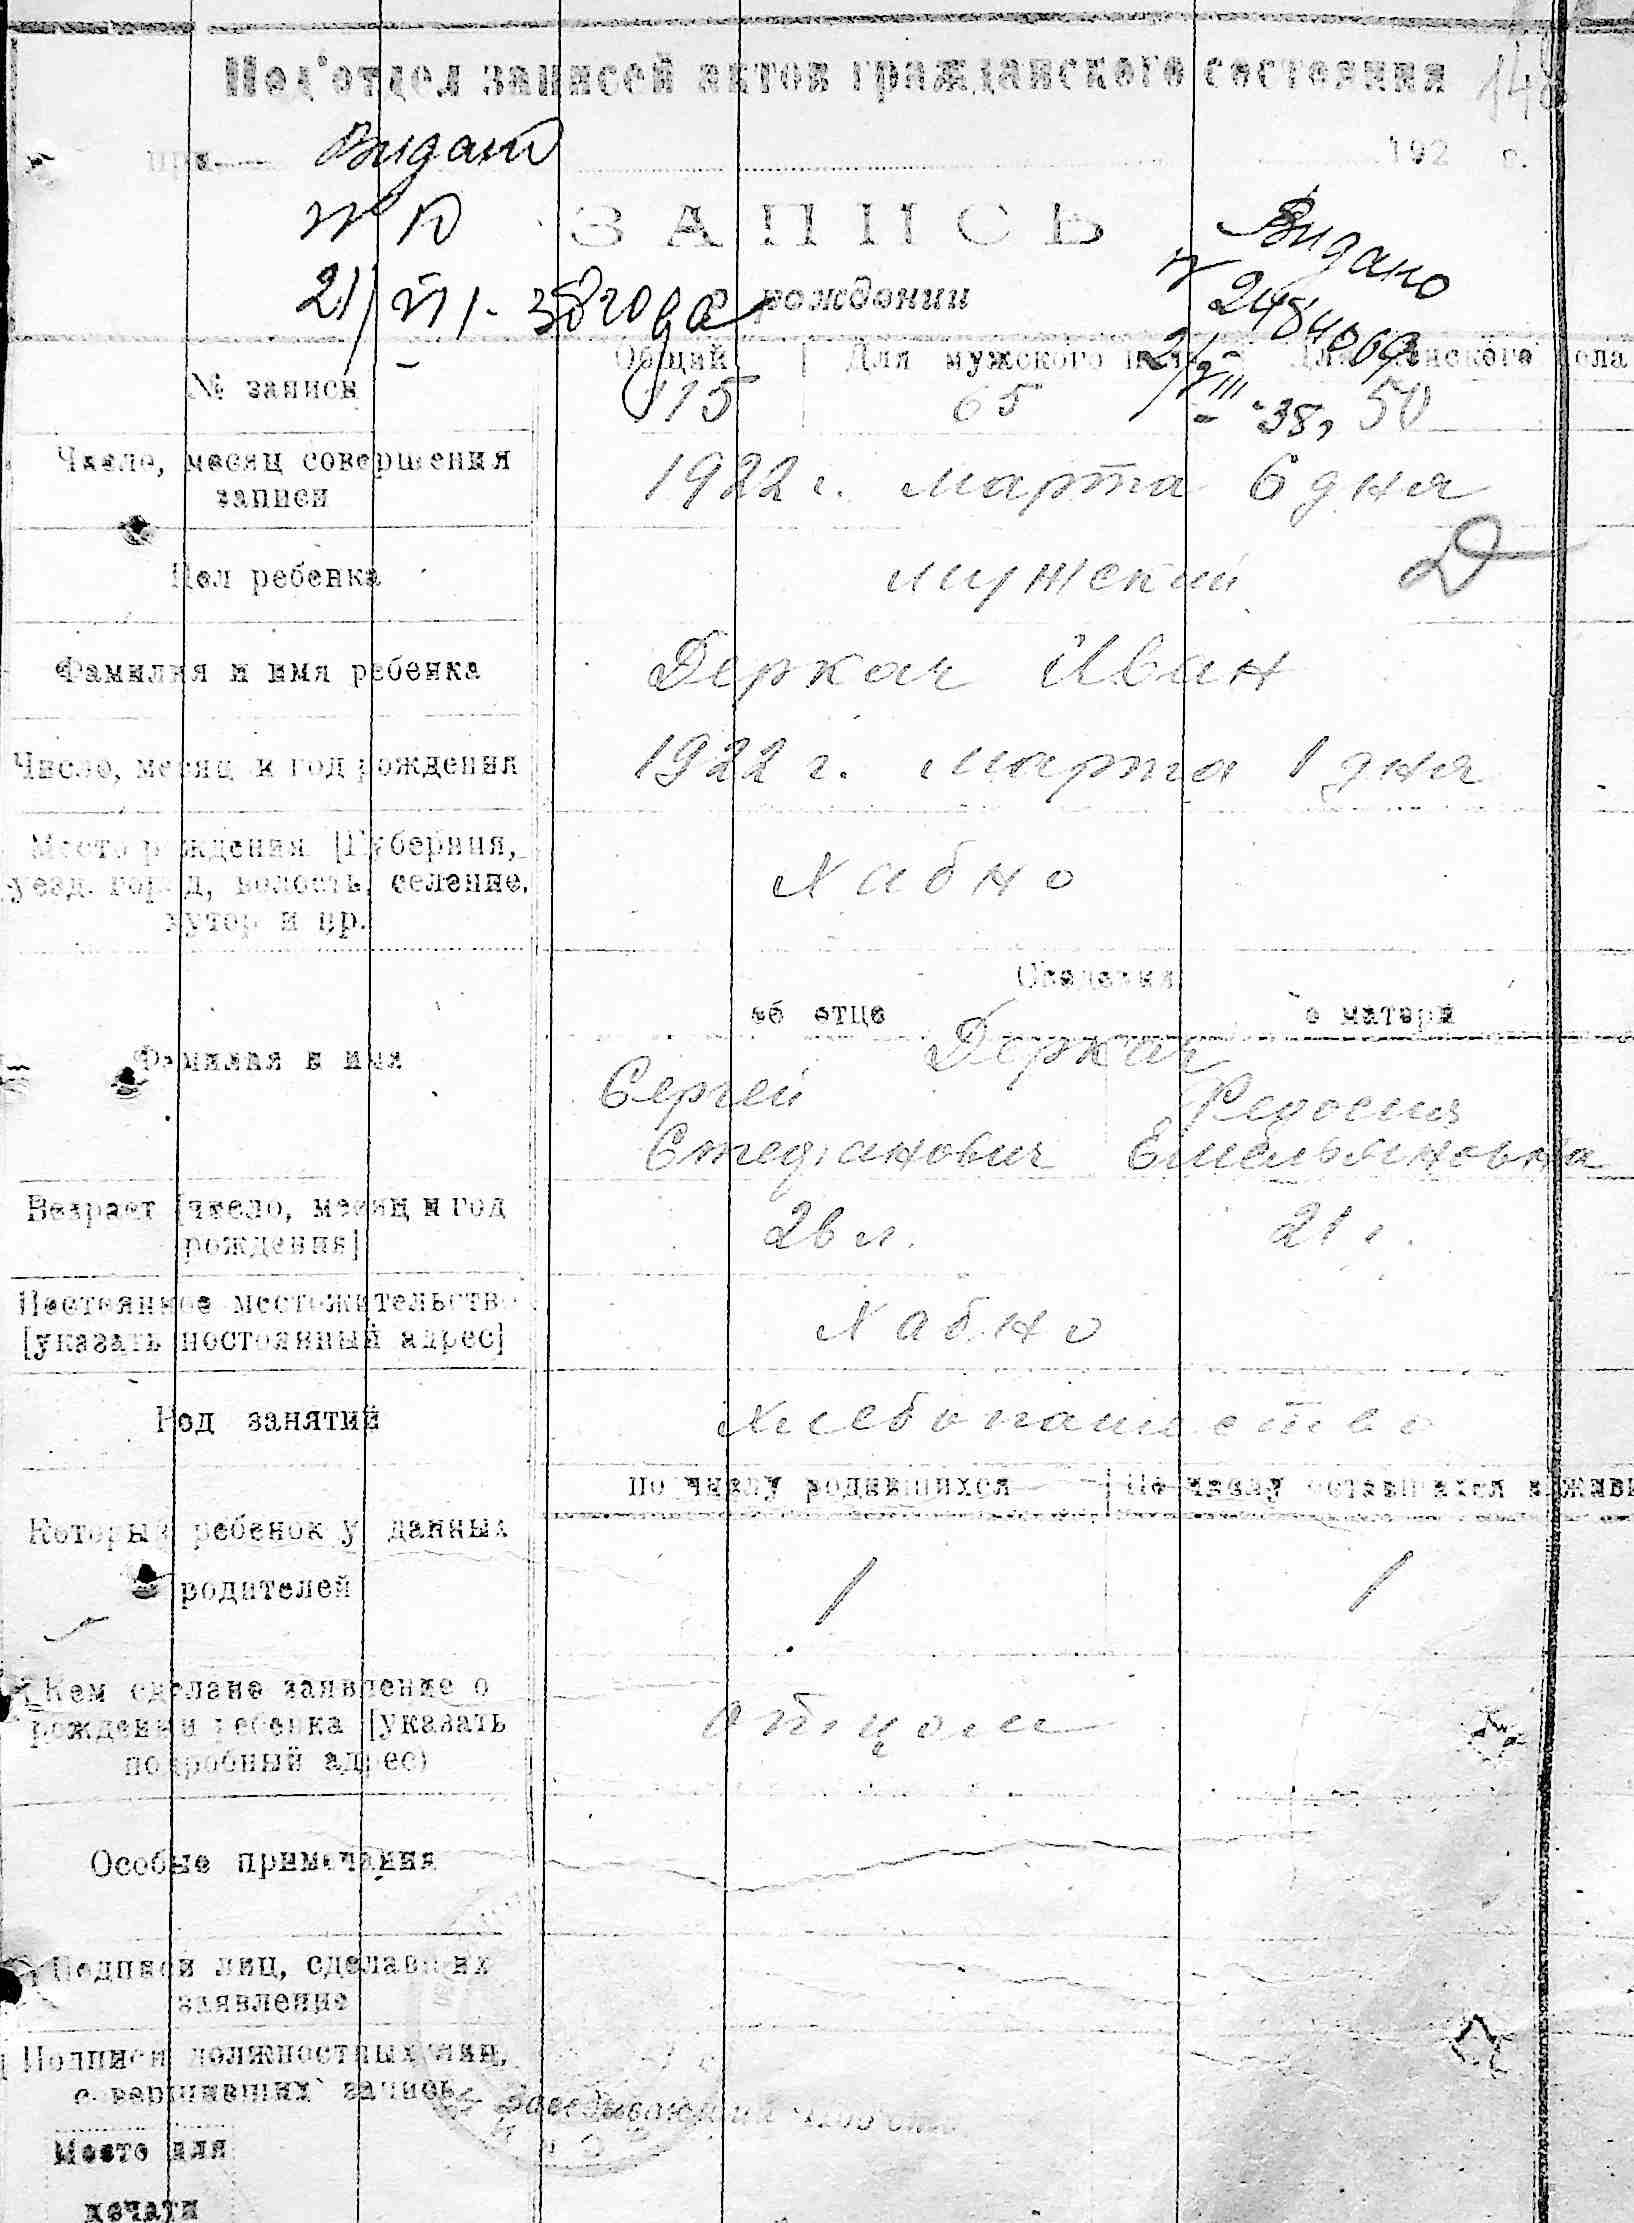 Под'отдел записей актов гражданского состояния 148
при 192 г.
Видано
ЗАПИСЬ
Видано
21/VII-38 года рождении
Общий Для мужского пола Для женского пола
№ записи 115 65 50
38
Число, месяц совершения 1922 г. марта 6 дня
записи
Пол ребенка мужский
Фамилия и имя ребенка Деркач Иван
Число, месяц и год рождения 1922 г. марта 1 дня
Место рождения [Губерния,
уезд, город, волость, селение, Хабно
хутор и пр.
Сведения
об отце о матери
Деркач
Фамилия и имя Сергей Федосия
Стефанович Емельяновна
Возраст [число, месяц и год 26 л. 21 г.
рождения]
Постоянное местожительство Хабно
[указать постоянный адрес]
Род занятий Хлебопашество
по числу родившихся По числу оставшихся в живых
Который ребенок у данных
родителей 1 1
Кем сделано заявление о
рождении ребенка [указать отцом
подробный адрес)
Особые примечания
Подписи лиц, сделавших
заявление
Подписи должностных лиц,
совершивших запись Заведывающий
Место для
печати